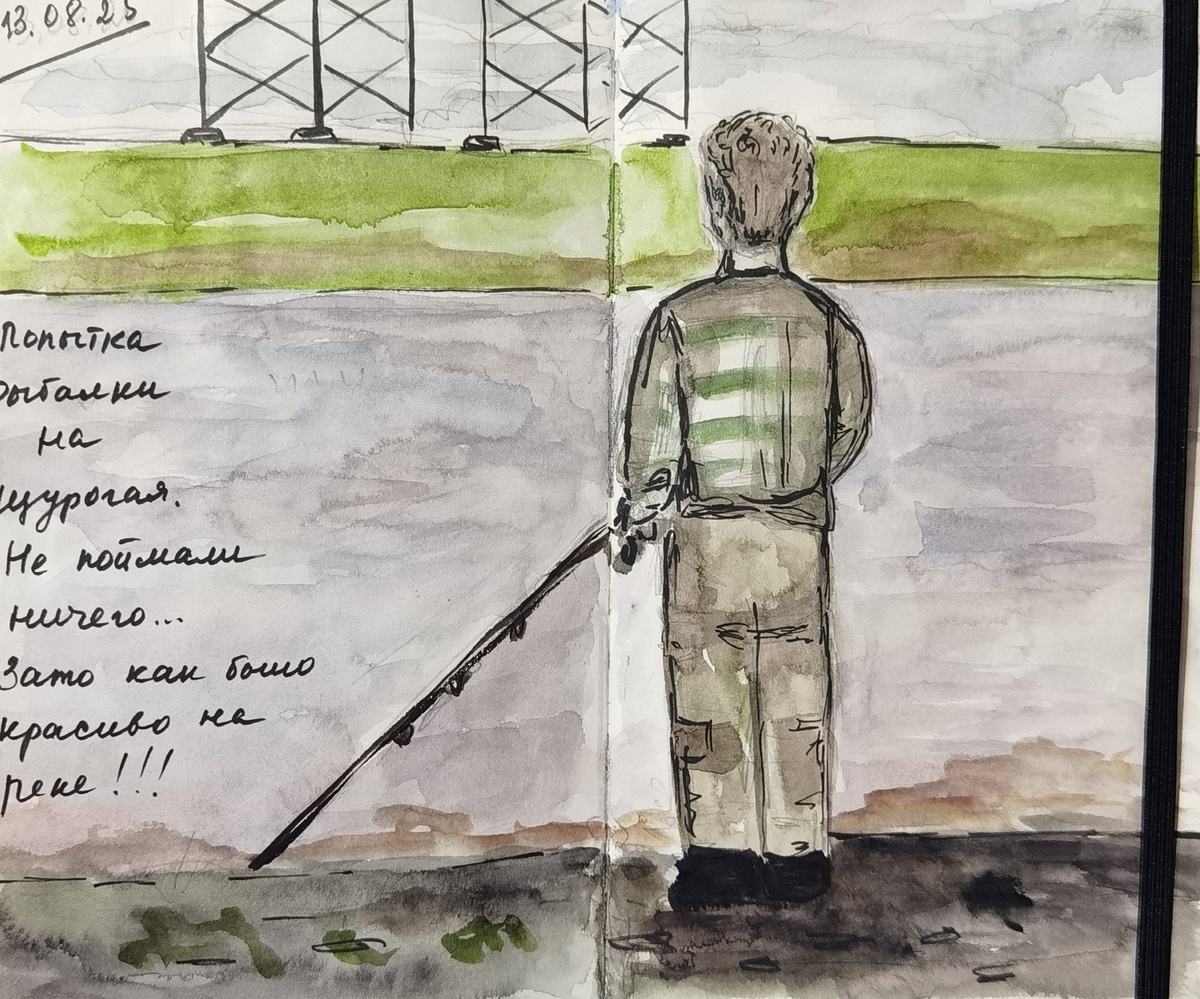 13.08.25
Попытка
рыбалки
на
щурогая.
Не поймали
ничего...
Зато как было
красиво на
реке!!!